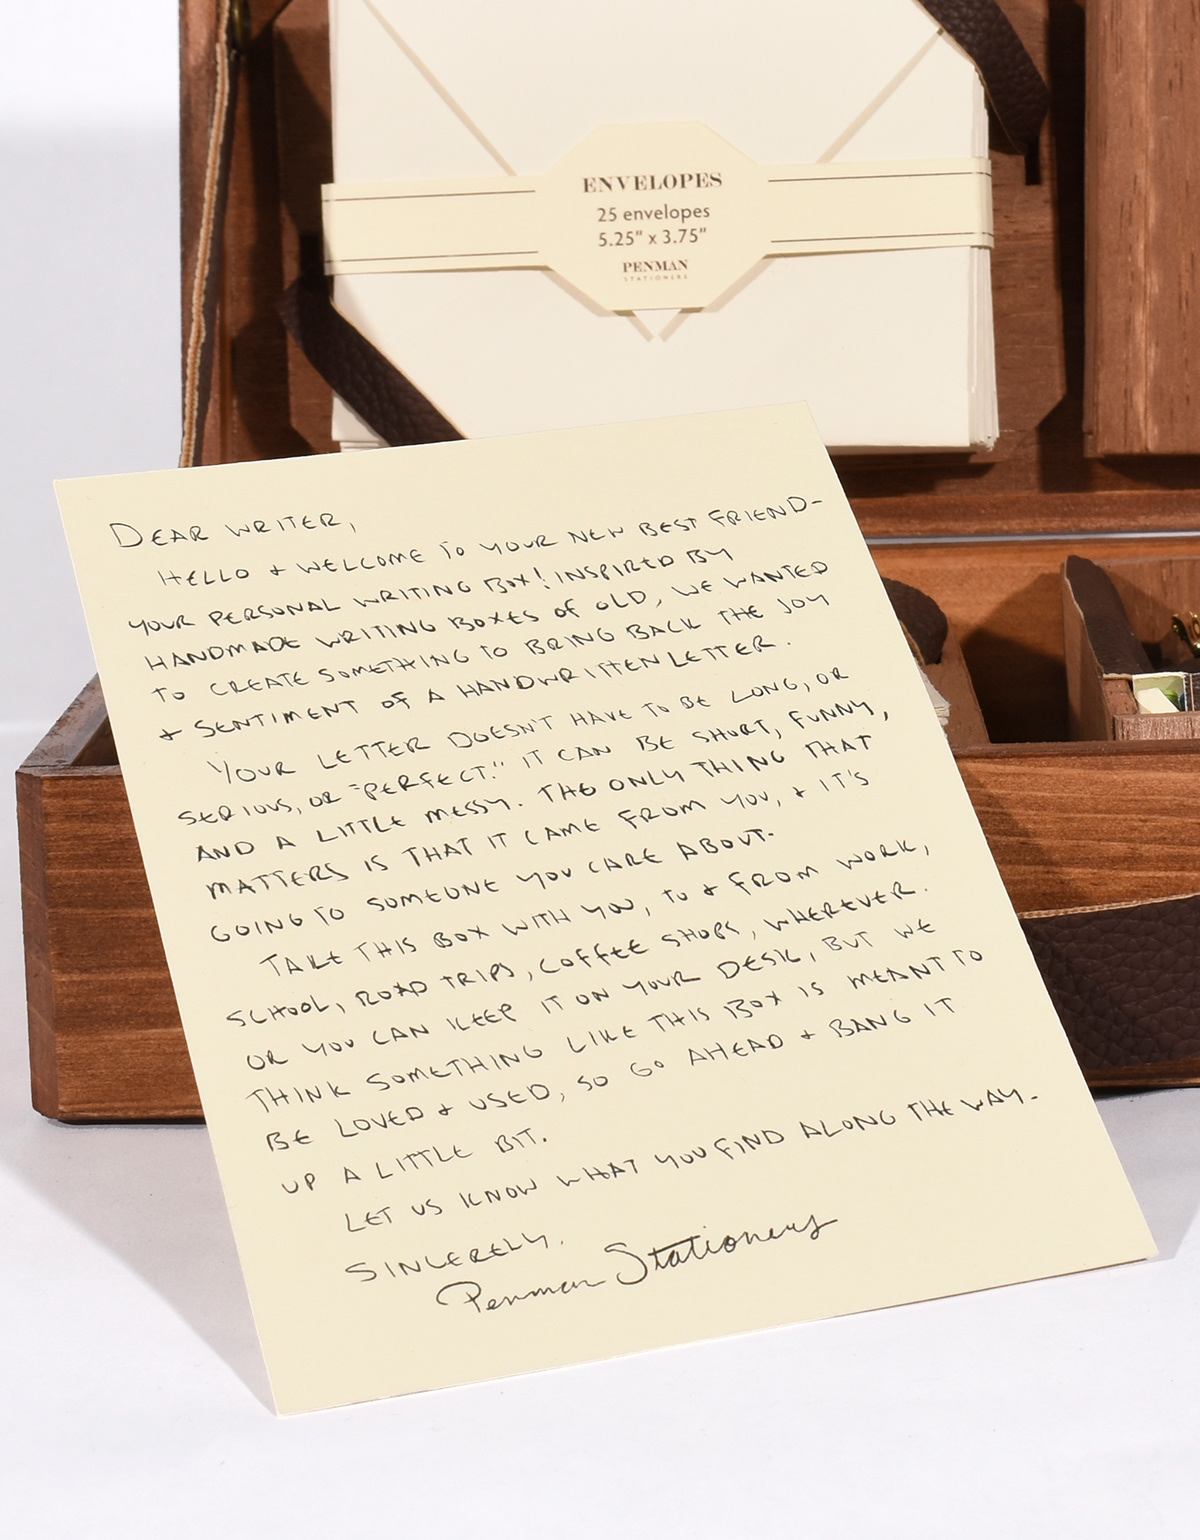 ENVELOPES
25 envelopes
5.25" x 3.75"
PENMAN
STATIONERS
DEAR WRITER,
HELLO & WELCOME TO YOUR NEW BEST FRIEND-
YOUR PERSONAL WRITING BOX! INSPIRED BY
HANDMADE WRITING BOXES OF OLD, WE WANTED
TO CREATE SOMETHING TO BRING BACK THE JOY
& SENTIMENT OF A HANDWRITTEN LETTER.
YOUR LETTER DOESN'T HAVE TO BE LONG, OR
SERIOUS, OR "PERFECT." IT CAN BE SHORT, FUNNY,
AND A LITTLE MESSY. THE ONLY THING THAT
MATTERS IS THAT IT CAME FROM YOU, & IT'S
GOING TO SOMEONE YOU CARE ABOUT.
TAKE THIS BOX WITH YOU, TO & FROM WORK,
SCHOOL, ROAD TRIPS, COFFEE SHOPS, WHEREVER.
OR YOU CAN KEEP IT ON YOUR DESK, BUT WE
THINK SOMETHING LIKE THIS BOX IS MEANT TO
BE LOVED & USED, SO GO AHEAD & BANG IT
UP A LITTLE BIT.
LET US KNOW WHAT YOU FIND ALONG THE WAY.
SINCERELY,
Penman Stationers